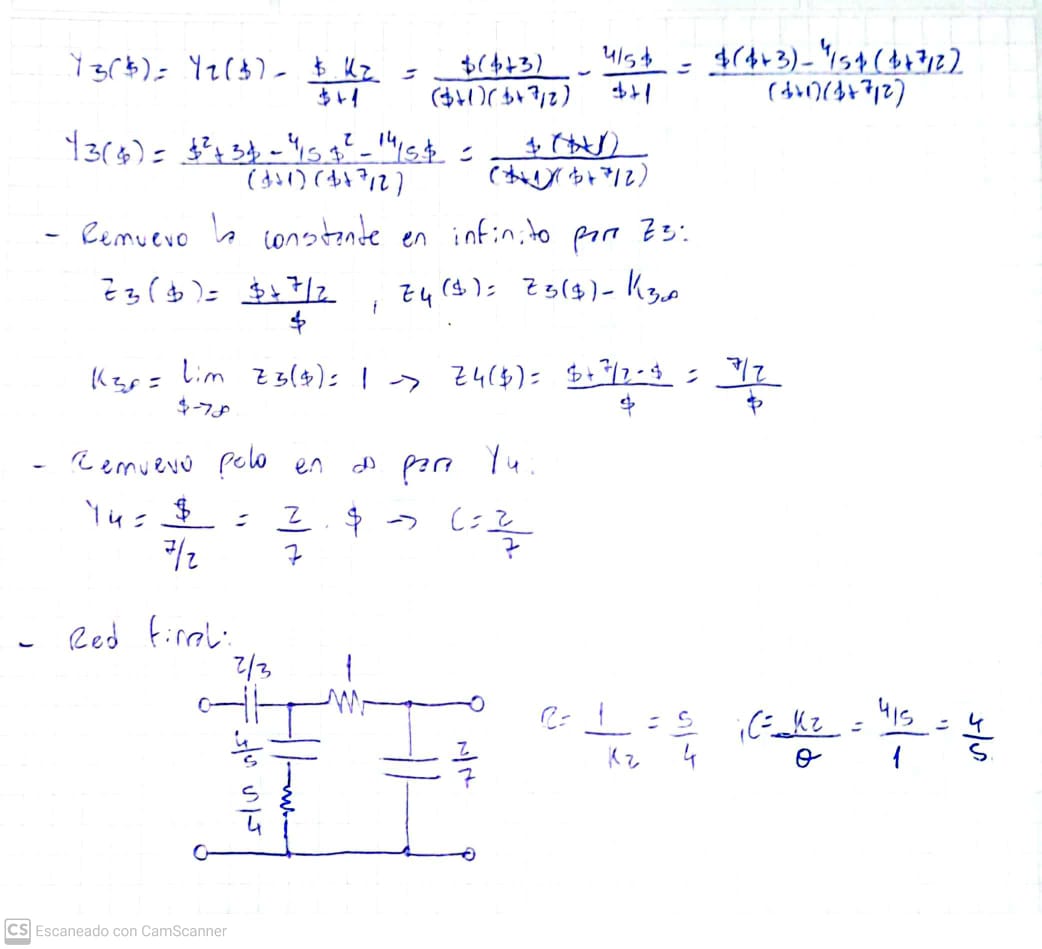 Y3($) = Y2($) - $ K2/($+1) = $($+3)/(($+1)($+7/2)) - 4/5$/($+1) = ($($+3) - 4/5$($+7/2))/(($+1)($+7/2))
Y3($) = ($² + 3$ - 4/5$² - 14/5$)/(($+1)($+7/2)) = $($+1)/(($+1)($+7/2))
- Remuevo la constante en infinito para Z3:
Z3($) = ($+7/2)/$ , Z4($) = Z3($) - K3∞
K3∞ = lim $→∞ Z3($) = 1 → Z4($) = ($+7/2-$)/$ = 7/2/$
- Remuevo polo en ∞ para Y4:
Y4 = $/7/2 = 2/7 . $ → C = 2/7
- Red final:
2/3
1
4/5
5/4
2/7
R = 1/K2 = 5/4 ; C = K2/σ = 4/5/1 = 4/5.
CS Escaneado con CamScanner